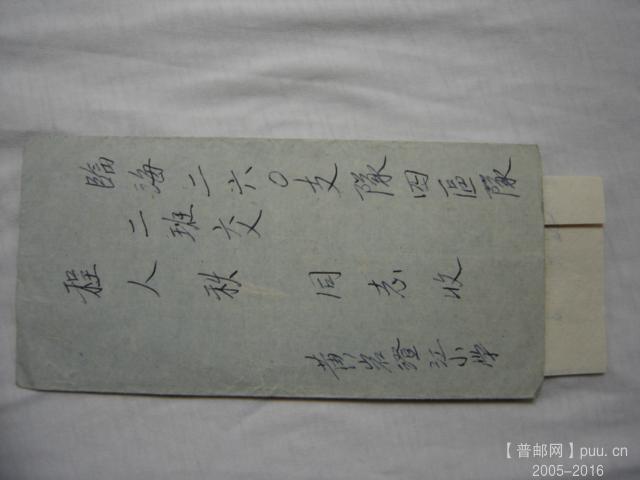 臨海二六〇支隊四區隊
二班交
程人秋同志收
黄岩澄江小学
【普邮网】puu.cn
2005-2016